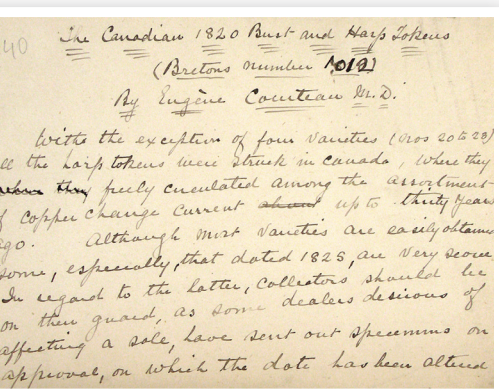 40
The Canadian 1820 Bust and Harp Tokens
(Bretons number 1012)
By Eugène Courteau M.D.
Withe the exception of four varieties (Nos 20 to 23)
all the harp tokens were struck in Canada, where they
where they freely circulated among the assortment
of copper change current about up to thirty years
ago. Although most varieties are easily obtained
some, especially, that dated 1825, are very scarce
In regard to the latter, collectors should be
on their guard, as some dealers desirous of
affecting a sale, have sent out specimens on
approval, on which the date has been altered